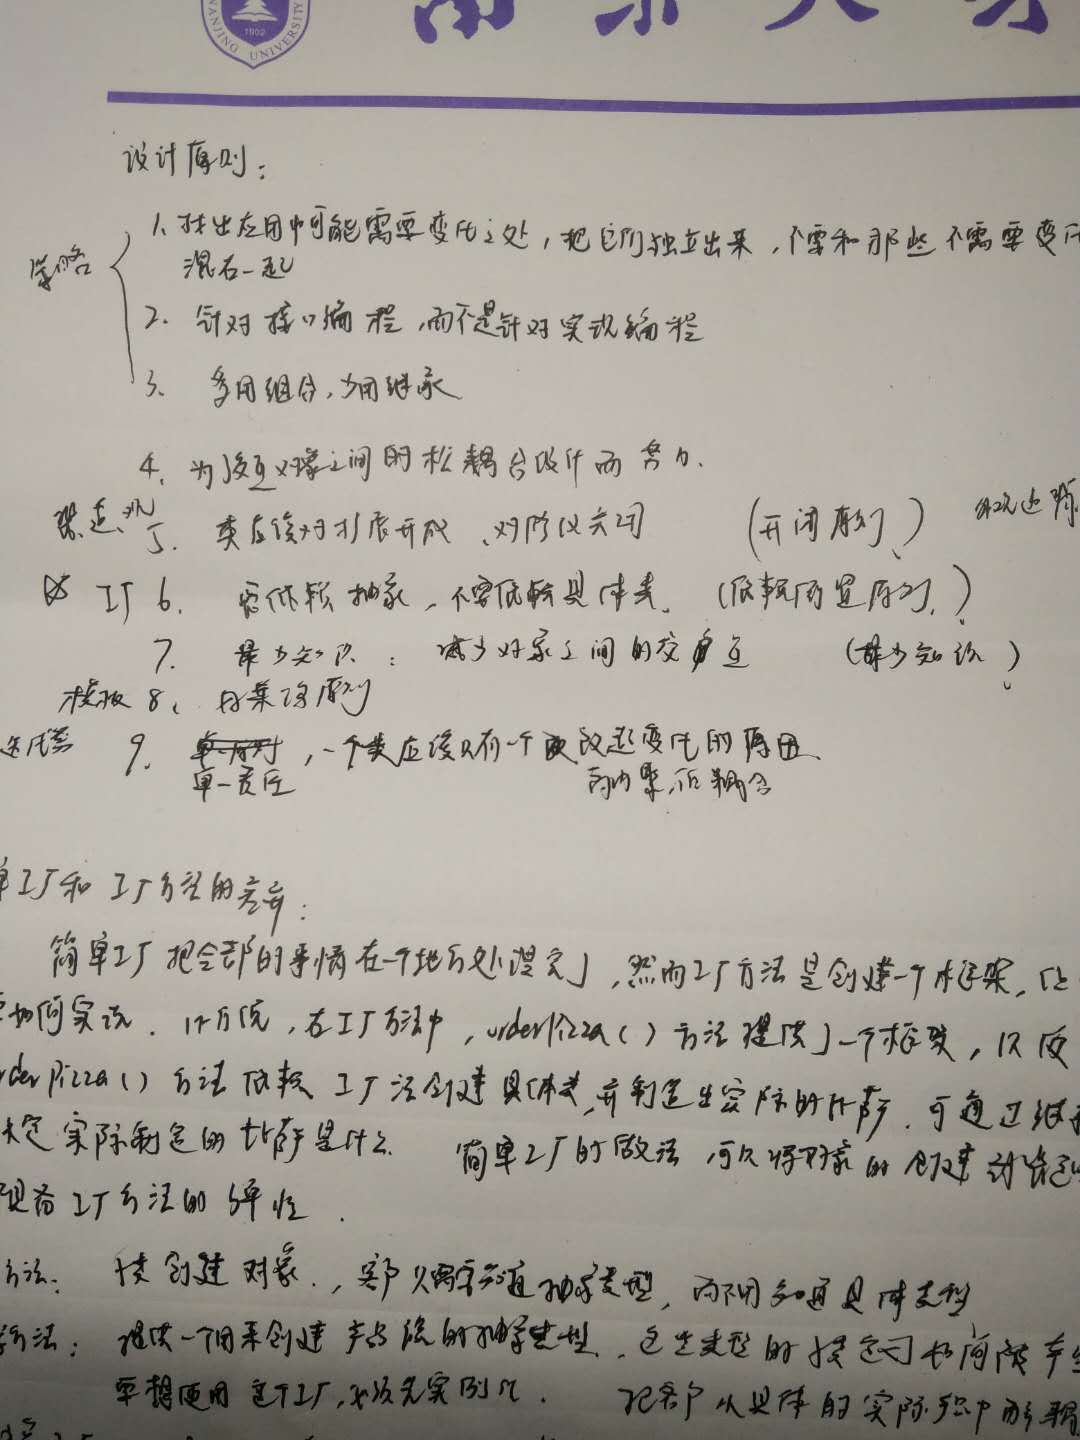 NANJING UNIVERSITY
1902
南京大学
设计原则：
1、找出应用中可能需要变化之处，把它们独立出来，不要和那些不需要变化
策略
混在一起
2. 针对接口编程，而不是针对实现编程
3、多用组合，少用继承
4、为交互对象之间的松耦合设计而努力.
5. 类应该对扩展开放、对修改关闭 (开闭原则)
工厂 6. 要依赖抽象，不要依赖具体类. (依赖倒置原则.)
7. 最少知识：减少对象之间的交互 (最少知识)
模板 8、好莱坞原则
迭代器 9. 单一责任，一个类应该只有一个改变的原因
高内聚，低耦合
单工厂和工厂方法的差异：
简单工厂把全部的事情在一个地方处理完了，然而工厂方法是创建一个框架，让
如何实现. 比方说，在工厂方法中，orderPizza()方法提供了一个框架，以便
orderPizza()方法依赖工厂方法创建具体类，并制造出实际的比萨. 可通过继承
决定实际制造的比萨是什么. 简单工厂的做法，可以将对象的创建封装起
具备工厂方法的弹性.
方法： 创建对象.，客户只需要知道抽象类型，而不用知道具体类型
方法：提供一个用来创建产品族的抽象类型.，这个类型的
要想使用这个工厂，必须先实例化. 把客户从具体的实际产品中解耦